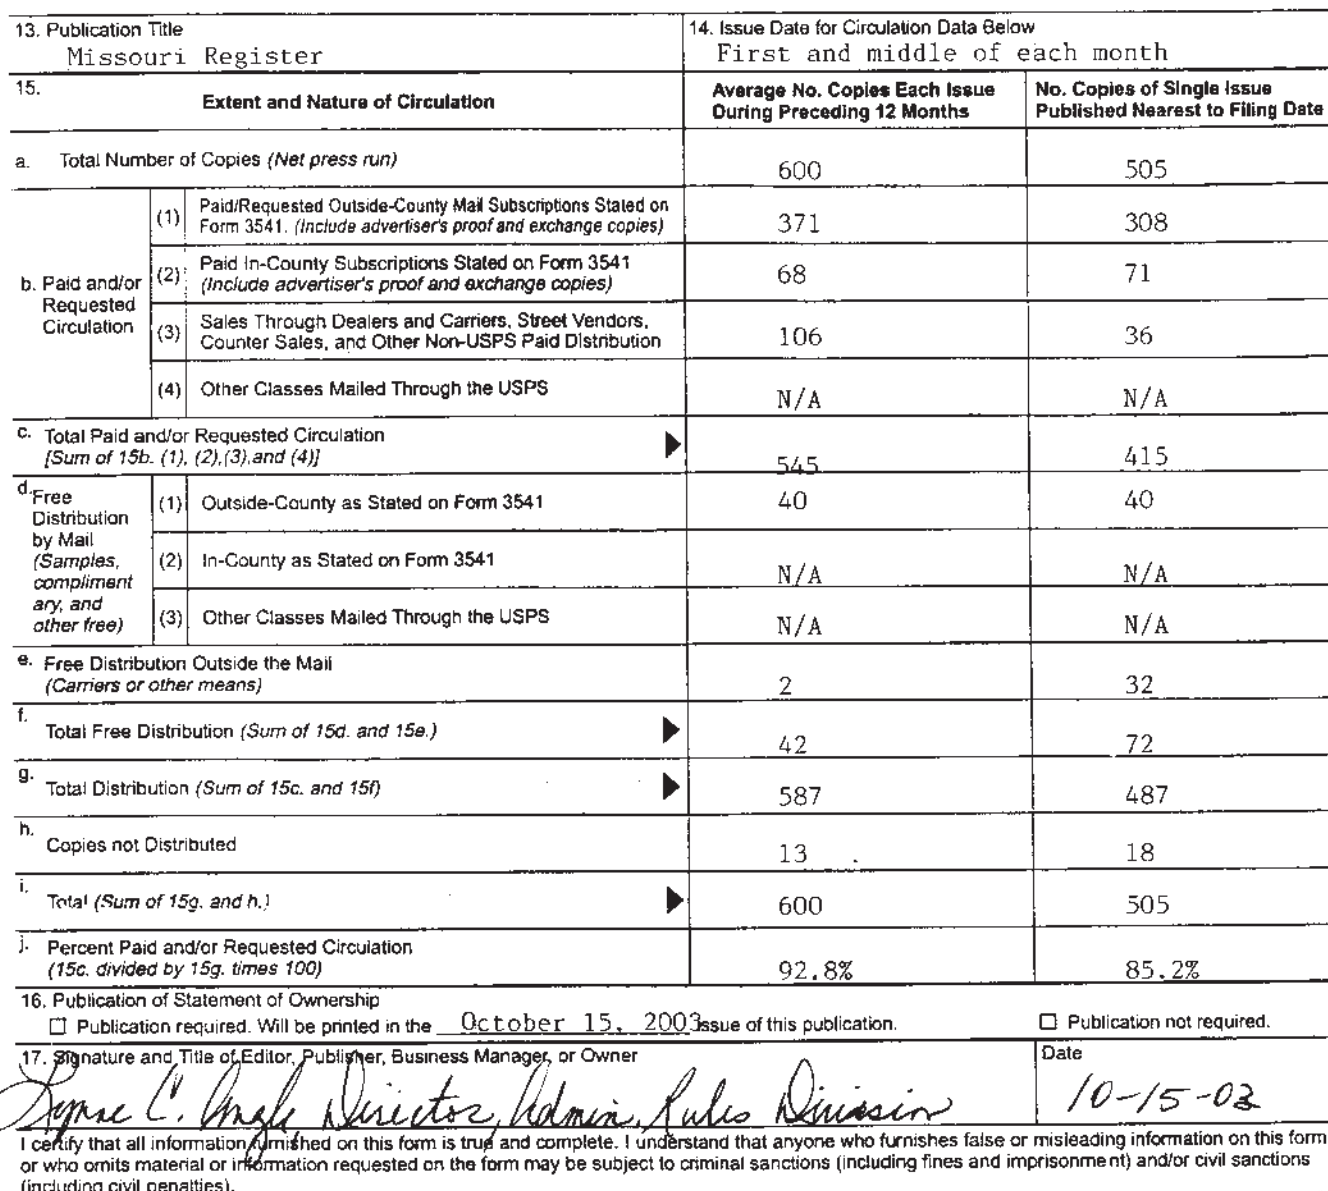 13. Publication Title
Missouri Register
14. Issue Date for Circulation Data Below
First and middle of each month
15.
Extent and Nature of Circulation
Average No. Copies Each Issue
During Preceding 12 Months
No. Copies of Single Issue
Published Nearest to Filing Date
a. Total Number of Copies (Net press run)
600
505
b. Paid and/or
Requested
Circulation
(1) Paid/Requested Outside-County Mail Subscriptions Stated on
Form 3541. (Include advertiser's proof and exchange copies)
371
308
(2) Paid In-County Subscriptions Stated on Form 3541
(Include advertiser's proof and exchange copies)
68
71
(3) Sales Through Dealers and Carriers, Street Vendors,
Counter Sales, and Other Non-USPS Paid Distribution
106
36
(4) Other Classes Mailed Through the USPS
N/A
N/A
c. Total Paid and/or Requested Circulation
[Sum of 15b. (1), (2),(3),and (4)]
545
415
d. Free
Distribution
by Mail
(Samples,
compliment
ary, and
other free)
(1) Outside-County as Stated on Form 3541
40
40
(2) In-County as Stated on Form 3541
N/A
N/A
(3) Other Classes Mailed Through the USPS
N/A
N/A
e. Free Distribution Outside the Mail
(Carriers or other means)
2
32
f. Total Free Distribution (Sum of 15d. and 15e.)
42
72
g. Total Distribution (Sum of 15c. and 15f)
587
487
h. Copies not Distributed
13
18
i. Total (Sum of 15g. and h.)
600
505
j. Percent Paid and/or Requested Circulation
(15c. divided by 15g. times 100)
92.8%
85.2%
16. Publication of Statement of Ownership
Publication required. Will be printed in the October 15, 2003 issue of this publication.
Publication not required.
17. Signature and Title of Editor, Publisher, Business Manager, or Owner
Date
Lynne C. Angle, Director, Admin. Rules Division
10-15-03
I certify that all information furnished on this form is true and complete. I understand that anyone who furnishes false or misleading information on this form
or who omits material or information requested on the form may be subject to criminal sanctions (including fines and imprisonment) and/or civil sanctions
(including civil penalties).